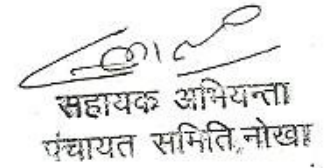 सहायक अभियन्ता
पंचायत समिति,नोखा